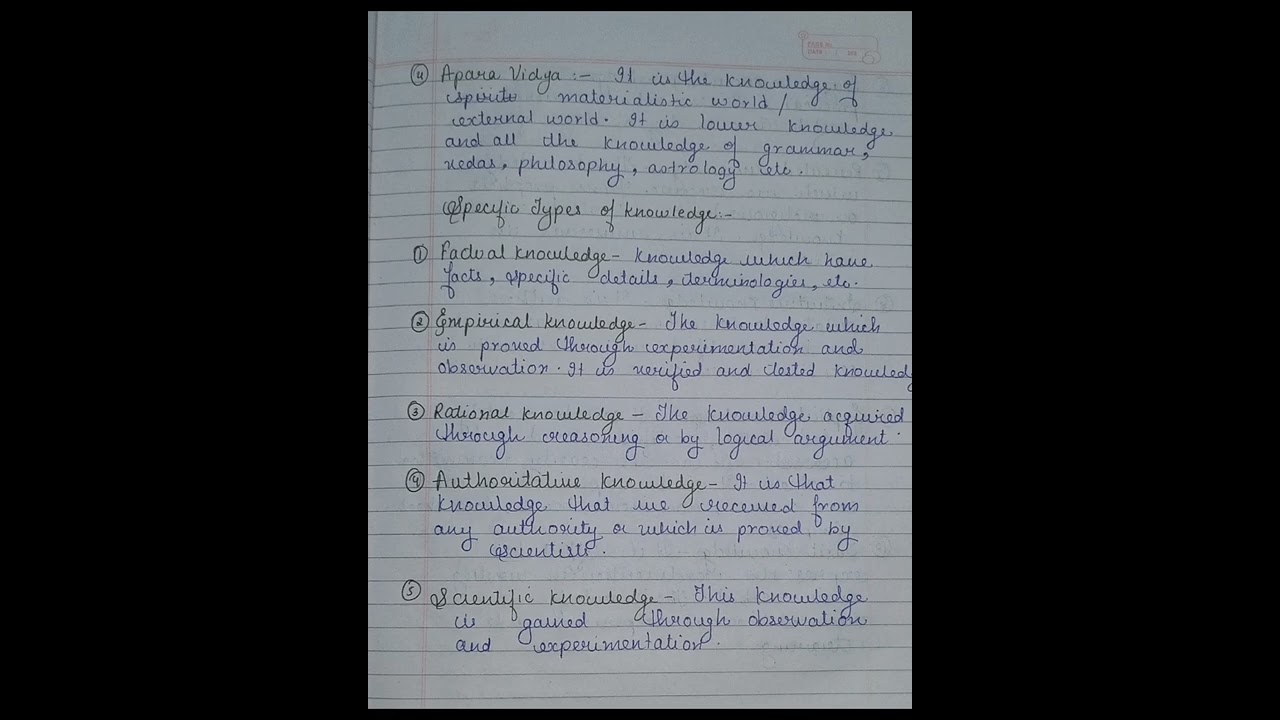 PAGE No.
DATE
④ Apara Vidya :- It is the knowledge of
spirits materialistic world /
external world. It is lower knowledge
and all the knowledge of grammar,
vedas, philosophy, astrology etc.
Specific Types of knowledge:-
① Factual knowledge - knowledge which have
facts, specific details, terminologies, etc.
② Empirical knowledge - The knowledge which
is proved through experimentation and
observation. It is verified and tested knowledg
③ Rational knowledge - The knowledge acquired
through reasoning or by logical argument.
④ Authoritative knowledge - It is that
knowledge that we received from
any authority or which is proved by
scientists.
⑤ Scientific knowledge - This knowledge
is gained through observation
and experimentation.